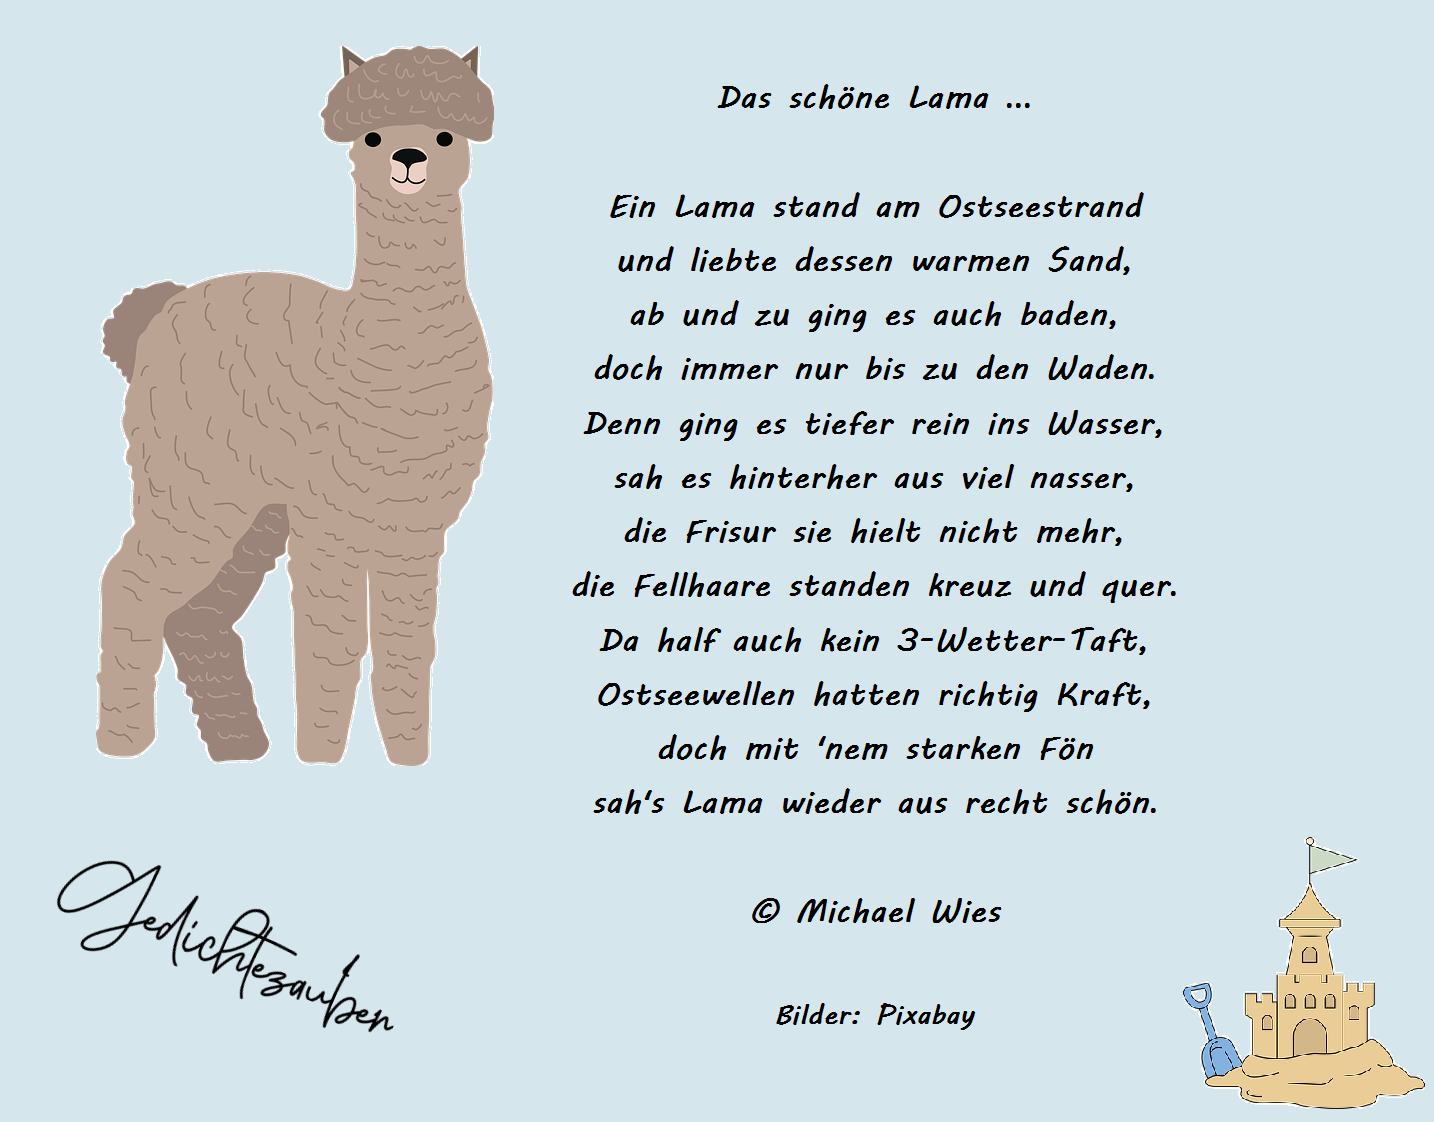 Das schöne Lama ...
Ein Lama stand am Ostseestrand
und liebte dessen warmen Sand,
ab und zu ging es auch baden,
doch immer nur bis zu den Waden.
Denn ging es tiefer rein ins Wasser,
sah es hinterher aus viel nasser,
die Frisur sie hielt nicht mehr,
die Fellhaare standen kreuz und quer.
Da half auch kein 3-Wetter-Taft,
Ostseewellen hatten richtig Kraft,
doch mit 'nem starken Fön
sah's Lama wieder aus recht schön.
© Michael Wies
Bilder: Pixabay
Gedichtezauber